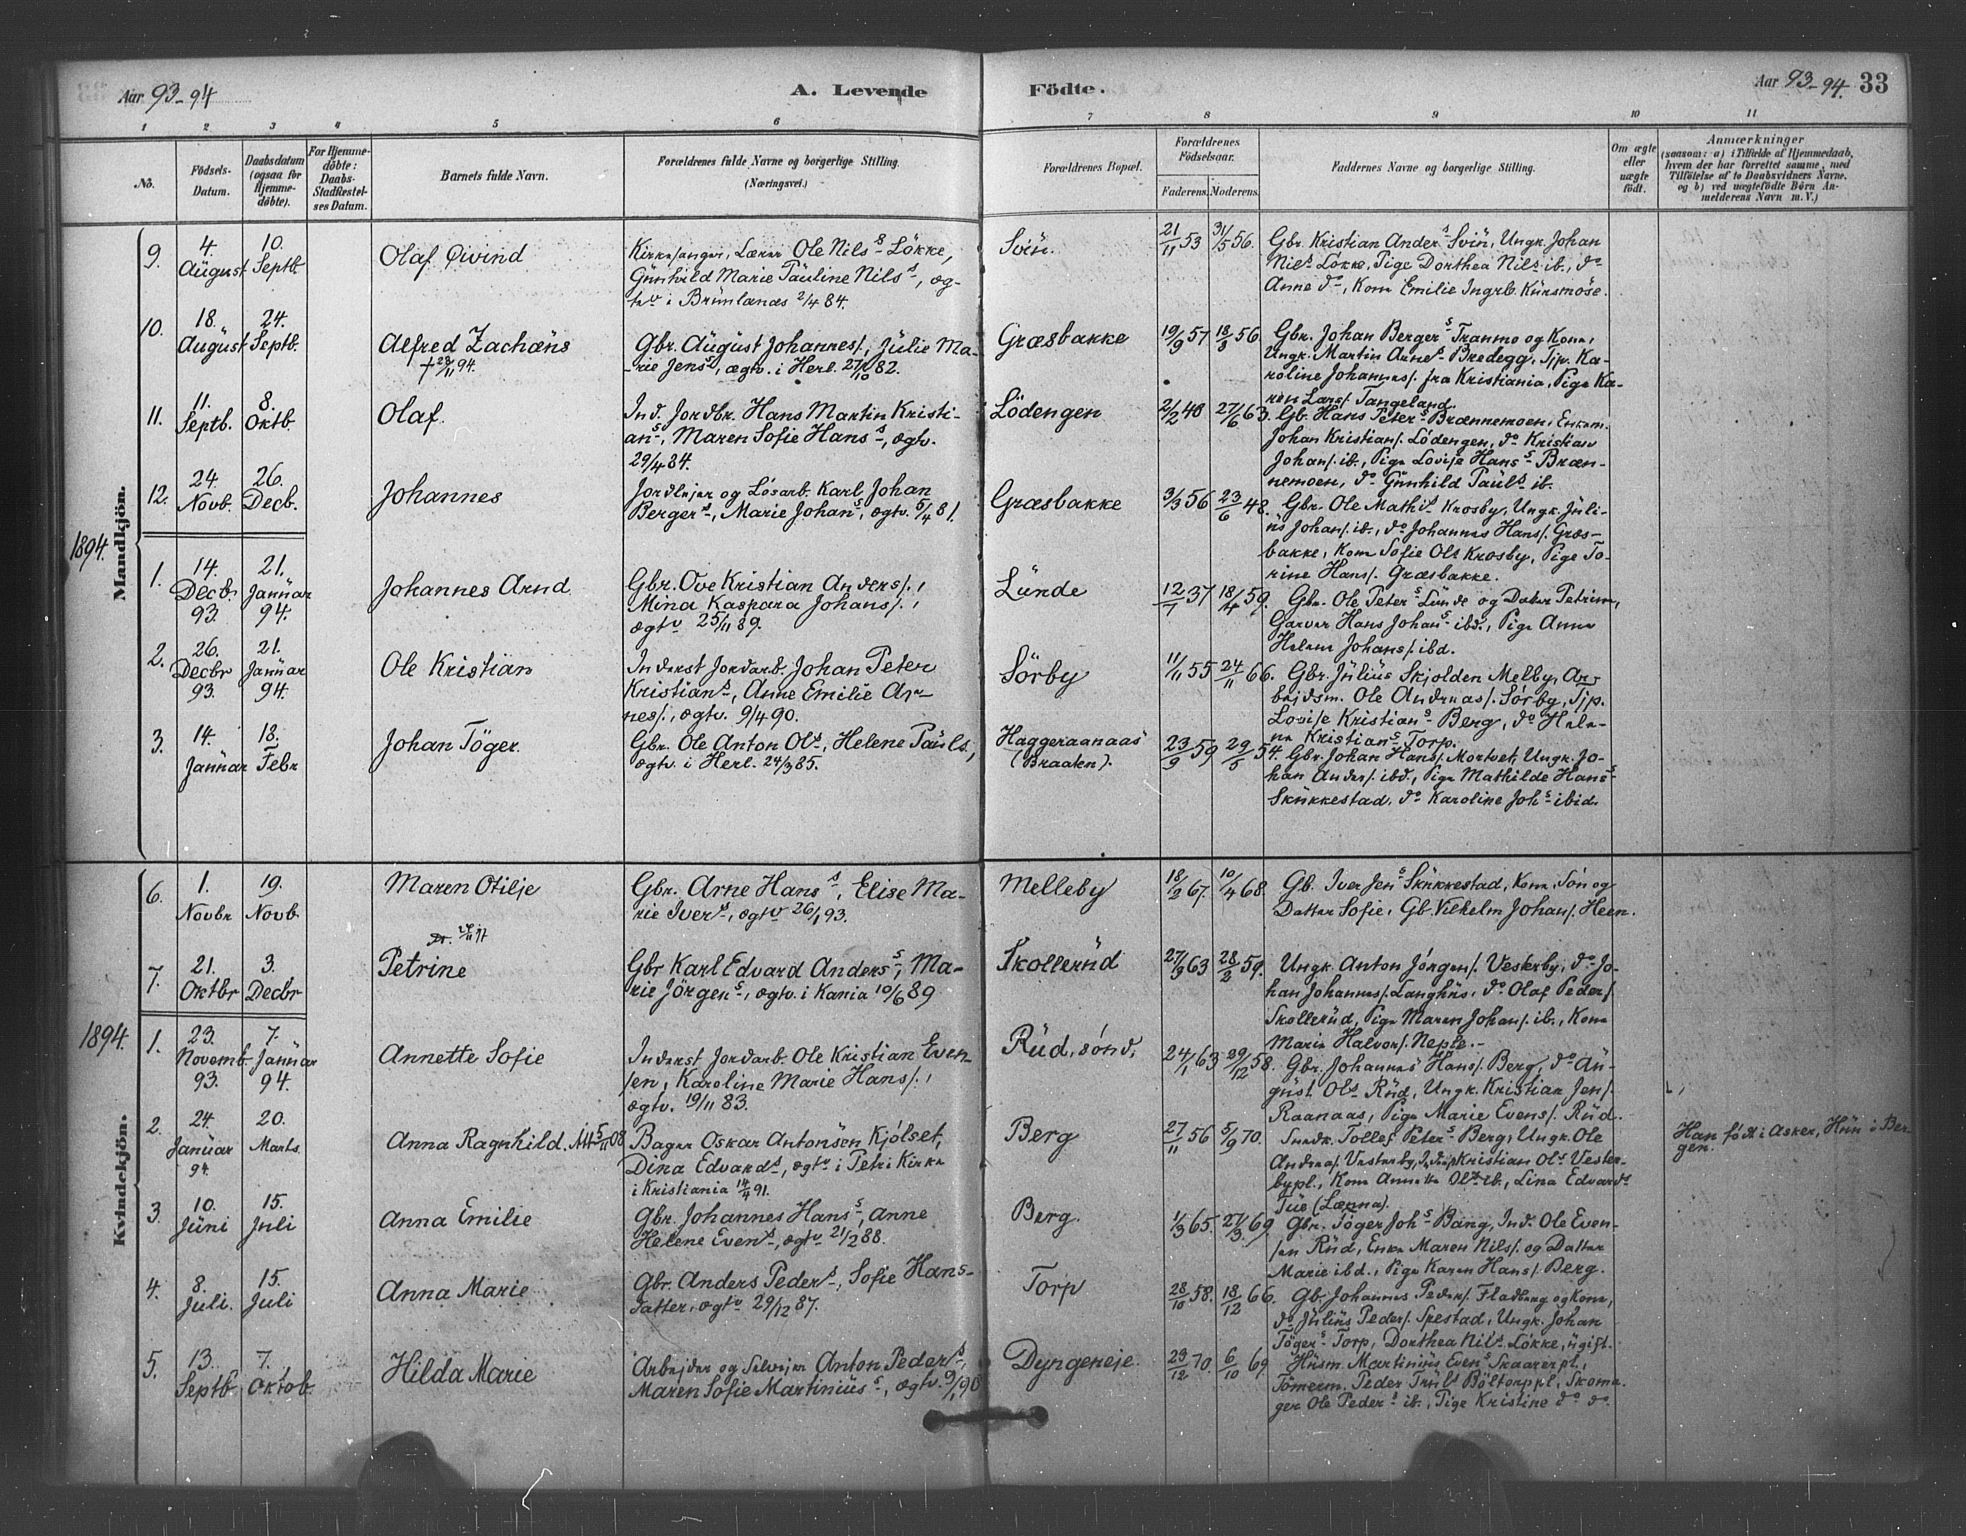 Aar 93-94
A. Levende
Födte.
Aar 93-94. 33
1 2 3 4 5 6 7 8 9 10 11
No.
Födsels-
Datum.
Daabsdatum
(ogsaa for
Hjemme-
döbte).
For Hjemme-
döbte:
Daabs-
Stadfæstel-
ses Datum.
Barnets fulde Navn.
Forældrenes fulde Navne og borgerlige Stilling.
(Næringsvei.)
Forældrenes Bopæl.
Forældrenes
Födselsaar.
Faderens. Moderens.
Faddernes Navne og borgerlige Stilling.
Om ægte
eller
uægte
födt.
Anmærkninger
(saasom: a) i Tilfælde af Hjemmedaab,
hvem der har forrettet samme, med
Tilföielse af to Daabsvidners Navne,
og b) ved uægtefödte Börn An-
melderens Navn m.V.)
Mandkjön.
9.
4.
August
10.
Septb.
Olaf Øivind
Kirkesanger, Lærer Ole Nils s Løkke,
Gunhild Marie Pauline Nils d, æg-
tv i Brunlanæs 2/4 84.
Svin.
21/11 53
31/5 56.
Gbr. Kristian Anders Svin, Ungk. Johan
Nils Løkke, Pige Dorthea Nils ib., do
Anne do, Kone Emilie Ingeb. Kursmose.
10.
18.
August
24.
Septb.
Alfred Zachæus
Gbr. August Johannes/., Julie Ma-
rie Jens d, ægtv. i Herl. 27/10 82.
Græsbakke
19/9 57
18/8 56
Gbr. Johan Berger s Tranmo og Kone,
Ungk. Martin Arne s Bredegg, Tjp. Ka-
roline Johannes/. fra Kristiania, Pige Ka-
ren Lars/. Tangeland.
11.
11.
Septb.
8.
Oktb.
Olaf
Ind. Jordbr. Hans Martin Kristi-
an s, Maren Sofie Hans d, ægtv.
29/4 84.
Lödengen
2/2 40
27/6 63.
Gb. Hans Peter s Brænnemoen, Enkem.
Johan Kristians/. Lödengen, do Kristian
Johans/. ib., Pige Lovise Hans s Bræn-
nemoen, do Gunhild Pauls ib.
12.
24.
Novb.
26.
Decb.
Johannes
Jordlejer og Løsarb. Karl Johan
Berger s, Marie Johan s, ægtv. 5/4 81.
Græsbakke
3/3 56
23/6 48.
Gbr. Ole Mathis Krosby, Ungk. Juli-
us Johans/. ib., do Johannes Hans/. Græs-
bakke, Kone Sofie Ols Krosby, Pige To-
rine Hans/. Græsbakke.
1894.
1.
14.
Decbr.
93.
21.
Januar
94.
Johannes Arnd
Gbr. Ove Kristian Anders/.,
Mina Kaspara Johans/.,
ægtv 25/11 89.
Lunde
12/7 37
18/4 59.
Gbr. Ole Peter s Lunde og Datter Petrine,
Garver Hans Johan s ibd., Pige Anne
Helene Johans/. ibd.
2.
26.
Decbr
93.
21.
Januar
94.
Ole Kristian
Inderst Jordarb. Johan Peter
Kristian s, Anne Emilie Ar-
nes/., ægtv. 9/4 90.
Sörby
11/11 55
24/11 66.
Gbr. Julius Skjolden Melby, Ar-
bejdsm. Ole Andreas/. Sørby, Tjp.
Lovise Kristian s Berg, do Hele-
ne Kristian s Torp.
3.
14.
Januar
18.
Febr
Johan Töger.
Gbr. Ole Anton Ols, Helene Pauls,
ægtv. i Herl. 24/3 85.
Haggeraanaas
(Braaten).
23/9 59
29/5 54.
Gbr. Johan Hans/. Mortvet, Ungk. Jo-
han Anders/. ibd., Pige Mathilde Hans s
Skukkestad, do Karoline Joh s ibid.
Kvindekjön.
6.
1.
Novbr
19.
Novb.
Maren Otilje
Gbr. Arne Hans s, Elise Ma-
rie Ivers d, ægtv 26/1 93.
Melleby
18/2 67.
10/4 68
Gb. Iver Jens Skukkestad, Kone, Søn og
Datter Sofie, Gb. Vilhelm Johans/. Heen.
7.
21.
Oktbr
3.
Decbr
Petrine
Gbr Karl Edvard Anders s, Ma-
rie Jörgen s, ægtv. i Kania 10/6 89
Skollerud
27/9 63
28/2 59.
Ungk. Anton Jörgens/. Vesterby, do Jo-
han Johannes/. Langhus, do Olaf Peders/.
Skollerud, Pige Maren Johans/. ib., Kone
Marie Halvors/. Neple.-
1894.
1.
23.
Novemb.
93.
7.
Januar
94.
Annette Sofie
Inderst Jordarb. Ole Kristian Even-
sen, Karoline Marie Hans/.,
ægtv. 19/11 83.
Rud, sönd.
24/1 63
29/12 58.
Gbr. Johannes Hans/. Berg, do Au-
gust Ols Rud, Ungk. Kristian Jens/.
Raanaas, Pige Marie Evens/. Rud.
2.
24.
Januar
94.
20.
Marts.
Anna Ragnhild.
Bager Oskar Antonsen Kjølset,
Dina Edvard d, ægtv i Petri Kirke
i Kristiania 14/4 91.
Berg
27/11 56
5/9 70.
Snedk. Tollef Peter s Berg, Ungk. Ole
Andreas/. Vesterby, Kristian Ols Vester-
bypl., Kone Annette Ols ib., Lina Edvards
Tue (Lænna).
Han född i Asker, Hun i Ber-
gen.
3.
10.
Juni
15.
Juli
Anna Emilie
Gbr. Johannes Hans s, Anne
Helene Even d, ægtv 21/2 88.
Berg.
1/3 65.
27/3 69.
Gbr. Töger Joh s Bang, Ind. Ole Even-
sen Rud, Enke Maren Nils/. og Datter
Marie ibd., Pige Karen Hans/. Berg.
4.
8.
Juli.
15.
Juli
Anna Marie
Gbr. Anders Peder s, Sofie Hans-
datter, ægtv 29/12 87.
Torp
28/10 58.
18/12 66.
Gb. Johannes Peders/. Fladberg og Kone,
do Julius Peders/. Spestad, Ungk. Johan
Töger s Torp, Dorthea Nils Løkke, ugift.
5.
13.
Septb
7.
Oktob.
Hilda Marie
Arbejder og Selvejer Anton Peder s,
Maren Sofie Martinius s, ægtv. 9/1 90
Dyngeneje.
29/12 70.
6/10 69.
Husm. Martinius Even s Skaarerpl.,
Tömerm. Peder Truls Böltorppl., Skoma-
ger Ole Peder s ib., Pige Kristine do do.